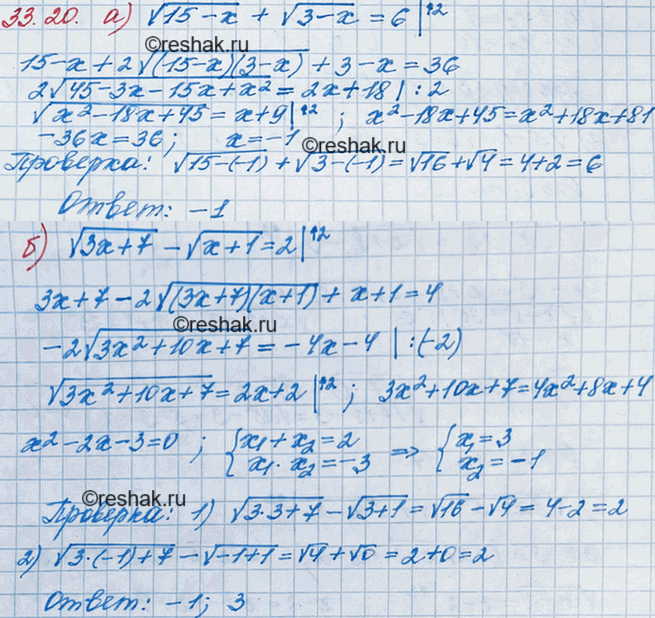 33.20. а) √(15-x) + √(3-x) = 6 |↑2
©reshak.ru
15-x+2√((15-x)(3-x)) + 3-x = 36
2√(45-3x-15x+x²) = 2x+18 | :2
√(x²-18x+45) = x+9 |↑2 ; x²-18x+45=x²+18x+81
-36x=36; x=-1
©reshak.ru
Проверка: √(15-(-1)) + √(3-(-1)) = √16+√4=4+2=6
Ответ: -1
б) √(3x+7) - √(x+1) = 2 |↑2
3x+7-2√((3x+7)(x+1)) + x+1=4
©reshak.ru
-2√(3x²+10x+7) = -4x-4 | :(-2)
√(3x²+10x+7) = 2x+2 |↑2 ; 3x²+10x+7=4x²+8x+4
x²-2x-3=0 ; {x₁+x₂=2 x₁·x₂=-3 => {x₁=3 x₂=-1
©reshak.ru
Проверка: 1) √(3·3+7) - √(3+1) = √16 - √4 = 4-2=2
2) √(3·(-1)+7) - √(-1+1) = √4+√0 = 2+0=2
Ответ: -1; 3